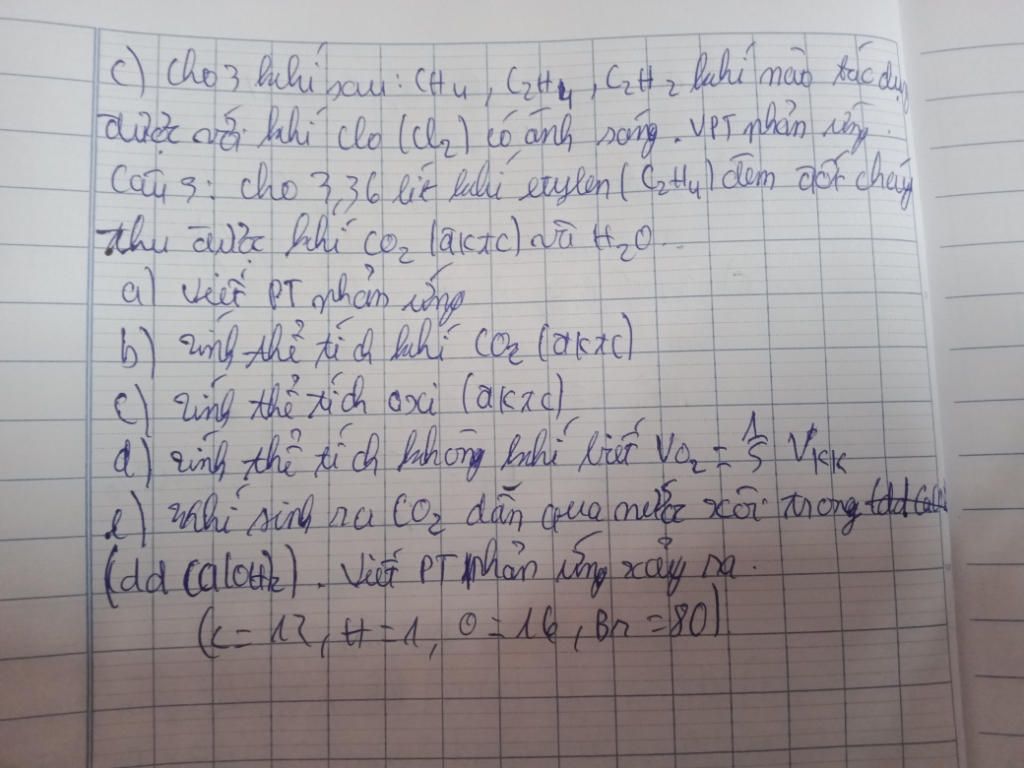 c) Cho 3 khí sau: CH4, C2H4, C2H2 khí nào tác dụng
được với khí clo (Cl2) có ánh sáng. VPT phản ứng.
Câu 3: cho 3,36 lit khí etylen (C2H4) đem đốt cháy
thu được khí CO2 (đktc) và H2O.
a) Viết PT phản ứng
b) Tính thể tích khí CO2 (đktc)
c) Tính thể tích oxi (đktc)
d) Tính thể tích không khí biết VO2 = 1/5 VKK
e) Khí sinh ra CO2 dẫn qua nước vôi trong
(dd Ca(OH)2). Viết PT phản ứng xảy ra.
(C = 12, H = 1, O = 16, Br = 80)